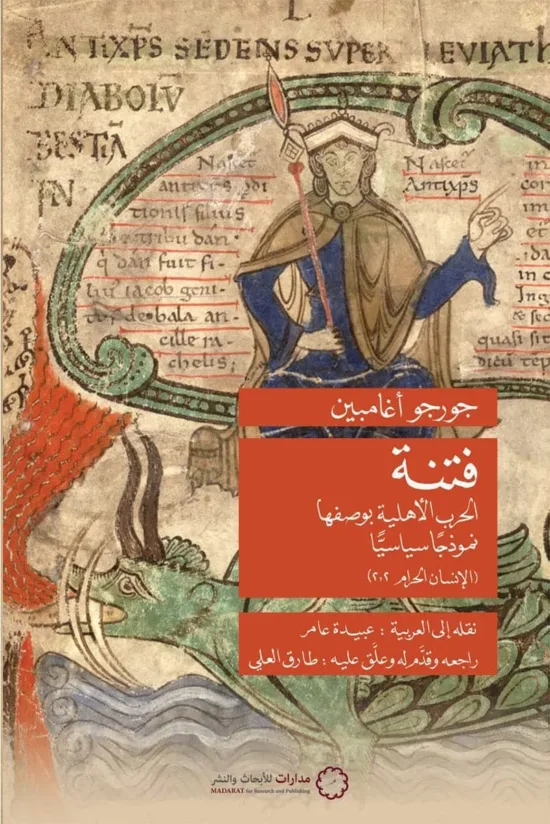 L
ANTIXP̄S SEDENS SUPER LEVIATH
DIABOLV̄
BESTIĀ
IN
Nascet̄
antixp̄s
tionis filius
tribu dan
q̄ dan fuit fi-
iacob geni-
de bala an-
cille ra-
chelis;
Nascet̄
Antixp̄s
in
im
et
dia
in c
Ing
& sec
quasi sit
جورجو أغامبين
فتنة
الحرب الأهلية بوصفها
نموذجًا سياسيًّا
(الإنسان الحرام ٢،٢)
نقله إلى العربية : عبيدة عامر
راجعه وقدَّم له وعلَّق عليه : طارق العلي
مدارات للأبحاث والنشر
MADARAT for Research and Publishing